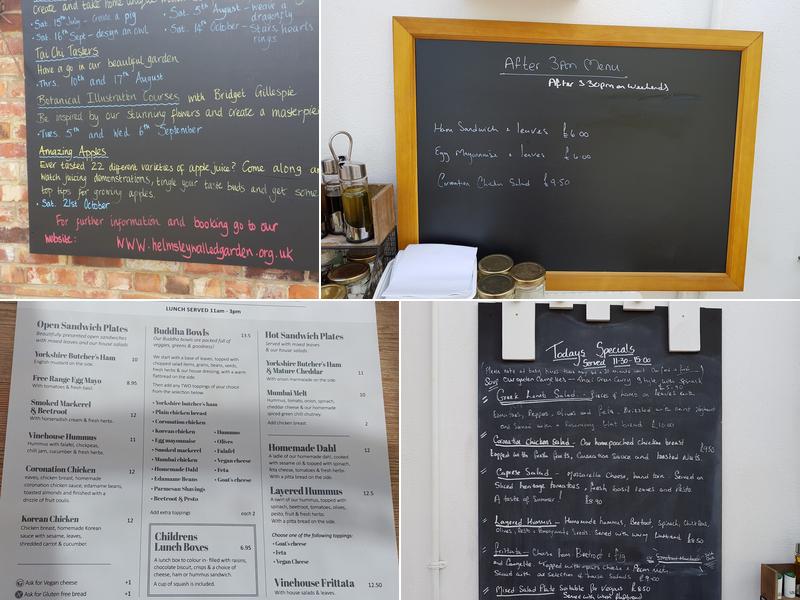 Sat. 15th July - create a pig
Sat. 5th August - weave a dragonfly
Sat. 16th Sept - design an owl
Sat. 14th October - Stars, hearts
rings
Tai Chi Tasters
Have a go in our beautiful garden
• Thrs. 10th and 17th August
Botanical Illustration Courses with Bridget Gillespie
Be inspired by our stunning flowers and create a masterpie
• Tues. 5th and Wed 6th September
Amazing Apples
Ever tasted 22 different varieties of apple juice? Come along an
watch juicing demonstrations, tingle your taste buds and get some
top tips for growing apples.
• Sat. 21st October
For further information and booking go to our
website: www.helmsleywalledgarden.org.uk
After 3pm Menu
After 3.30pm on weekends
Ham Sandwich + leaves £6.00
Egg Mayonnaise + leaves £6.00
Coronation Chicken Salad £9.50
LUNCH SERVED 11am - 3pm
Open Sandwich Plates
Beautifully presented open sandwiches
with mixed leaves and our house salads
Yorkshire Butcher's Ham 10
English mustard on the side.
Free Range Egg Mayo 8.95
With tomatoes & fresh basil.
Smoked Mackerel
& Beetroot 12
With horseradish cream & fresh herbs.
Vinehouse Hummus 11
Hummus with falafel, chickpeas,
chilli jam, cucumber & fresh herbs.
Coronation Chicken 12
eaves, chicken breast, homemade
coronation chicken sauce, edamame beans,
toasted almonds and finished with a
drizzle of fruit coulis.
Korean Chicken 12
Chicken breast, homemade Korean
sauce with sesame, leaves,
shredded carrot & cucumber.
Ask for Vegan cheese +1
Ask for Gluten free bread +1
Buddha Bowls 13.5
Our Buddha bowls are packed full of
veggies, greens & goodness!
We start with a base of leaves, topped with
chopped salad items, grains, beans, seeds,
fresh herbs & our house dressing, with a warm
flatbread on the side.
Then add any TWO toppings of your choice
from the selection below.
• Yorkshire butcher's ham
• Plain chicken breast
• Coronation chicken
• Korean chicken
• Egg mayonnaise
• Smoked mackerel
• Mumbai chicken
• Homemade Dahl
• Edamame Beans
• Parmesan Shavings
• Beetroot & Pesto
• Hummus
• Olives
• Falafel
• Vegan cheese
• Feta
• Goat's cheese
Add extra toppings each 2
Childrens
Lunch Boxes 6.95
A lunch box to colour in- filled with raisins,
chocolate biscuit, crisps & a choice of
cheese, ham or hummus sandwich.
A cup of squash is included.
Hot Sandwich Plates
Served with mixed leaves
& our house salads
Yorkshire Butcher's Ham
& Mature Cheddar 11
With onion marmalade on the side.
Mumbai Melt 10
Hummus, tomato, onion, spinach,
cheddar cheese & our homemade
spiced green chilli chutney.
Add chicken breast 2
Homemade Dahl 12
A ladle of our homemade dahl, cooked
with sesame oil & topped with spinach,
feta cheese, tomatoes & fresh herbs.
With a pitta bread on the side.
Layered Hummus 12.5
A swirl of our hummus, topped with
spinach, beetroot, tomatoes, olives,
pesto, fruit & fresh herbs.
With a pitta bread on the side.
Choose one of the following toppings:
• Goat's cheese
• Feta
• Vegan Cheese
Vinehouse Frittata 12.50
With house salads & leaves.
Todays Specials
Served 11.30 - 15.00
Greek Lentil Salad
tomatoes, Peppers, olives and Feta. Drizzled with
£10.00
Coronation Chicken Salad - Our homepoached Chicken breast
topped with fresh fruits, Coronation Sauce and toasted Nuts. £9.50
Caprese Salad - Mozzarella Cheese, hand torn. Served on
Sliced heritage tomatoes, fresh basil leaves and Pesto.
A taste of Summer! £8.90
Layered Hummus - Homemade hummus, Beetroot, Spinach, Chickpeas,
Olives, Pesto + Pomegranate Seeds. Served with warm flatbread £8.50
Frittata - Choose from Beetroot + Fig
and Courgette. Topped with
Served with our Selection of house Salads £9.00
Mixed Salad Plate Suitable for Vegans £8.50
Served with warm flatbread